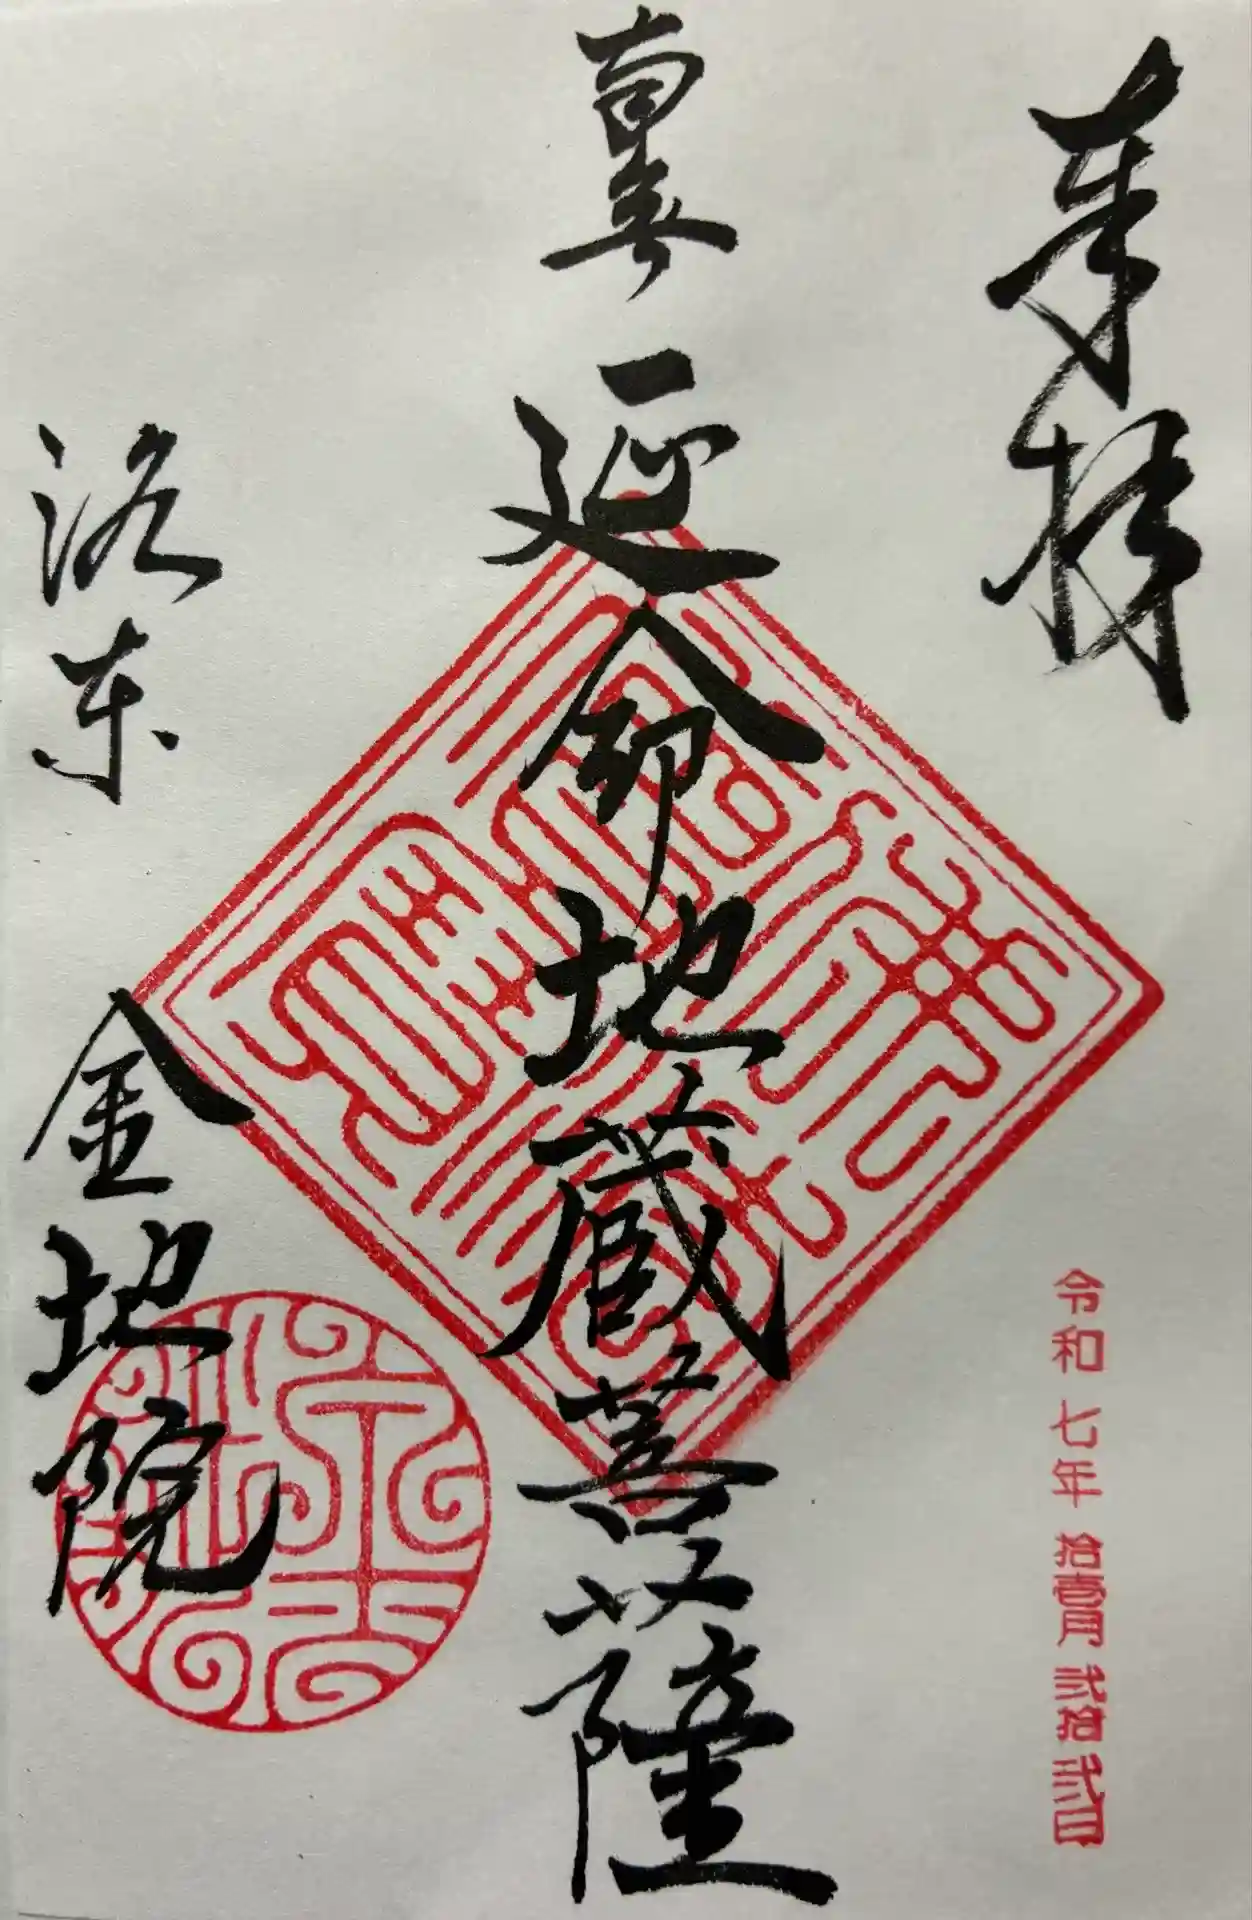 奉拝
令和七年拾壹月弐拾弐日
南無
延命地蔵菩薩
洛东
金地院